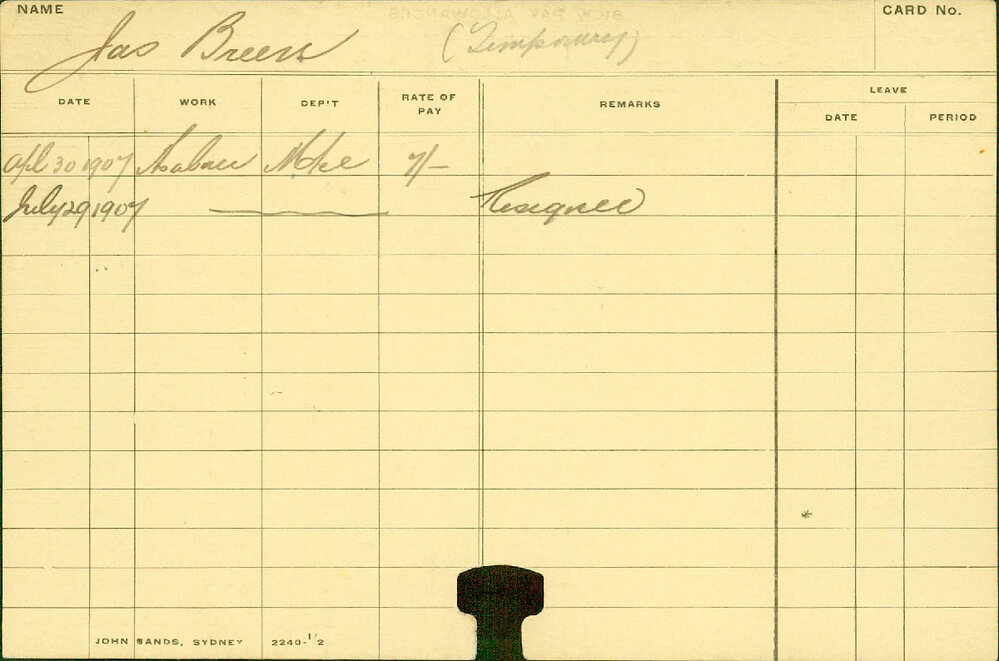 NAME
CARD No.
Jas Breen (Temporary)
DATE WORK DEP'T RATE OF PAY REMARKS LEAVE
DATE PERIOD
Apl 30 1907 7/-
July 29 1907 Resigned
JOHN SANDS, SYDNEY 2240-1/2